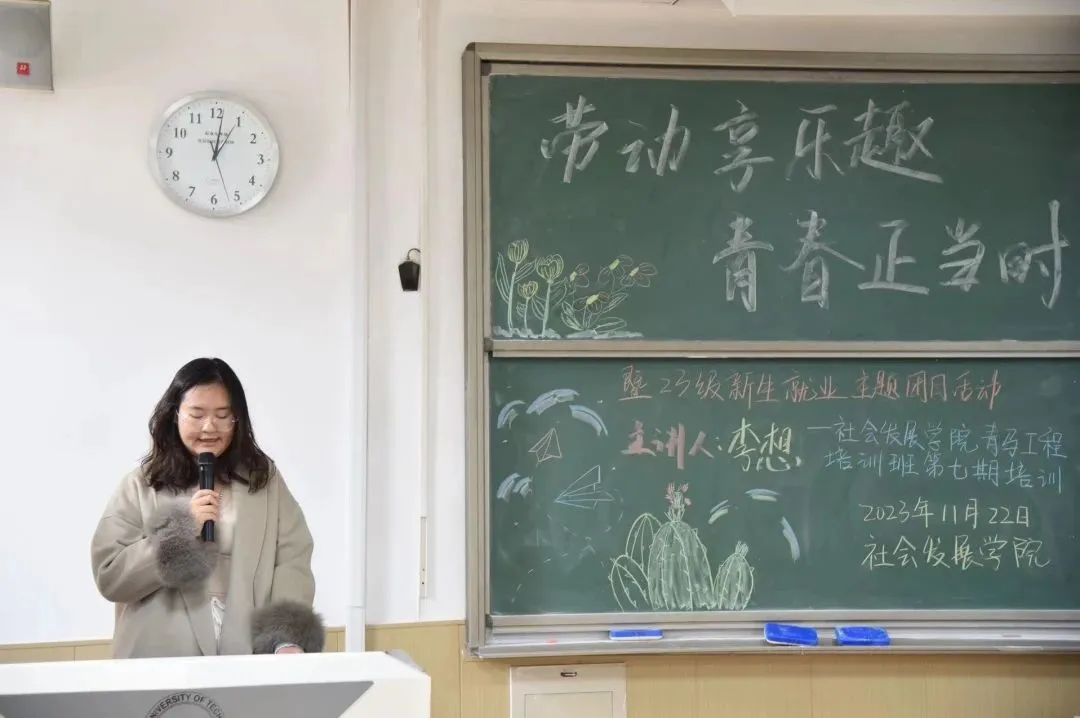 12
1
2
3
4
5
6
7
8
9
10
11
劳动享乐趣
青春正当时
暨23级新生就业主题团日活动
主讲人:李想
—社会发展学院青马工程
培训班第七期培训
2023年11月22日
社会发展学院
VERSITY OF TECH